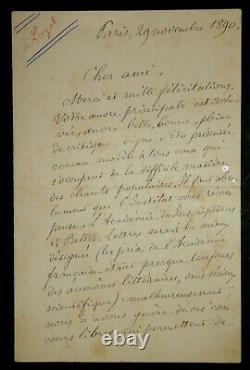 Luzel
Paris, 29 novembre 1890.
Cher ami,
Merci et mille félicitations.
Votre œuvre principale est achevée
vée, œuvre belle, bonne, pleine
de critique, digne d'être présentée
comme modèle à tous ceux qui
s'occupent de la difficile matière
des chants populaires. Il faut abso-
lument que l'Institut vous récom-
pense. L'Académie des Inscriptions
et Belles lettres serait la mieux
désignée (les prix de l'Académie
française étant presque toujours
des aumônes littéraires, sans sérieux
scientifique) : malheureusement
nous n'avons guère de ces con-
cours libres qui permettent de
© www.worthpoint.com